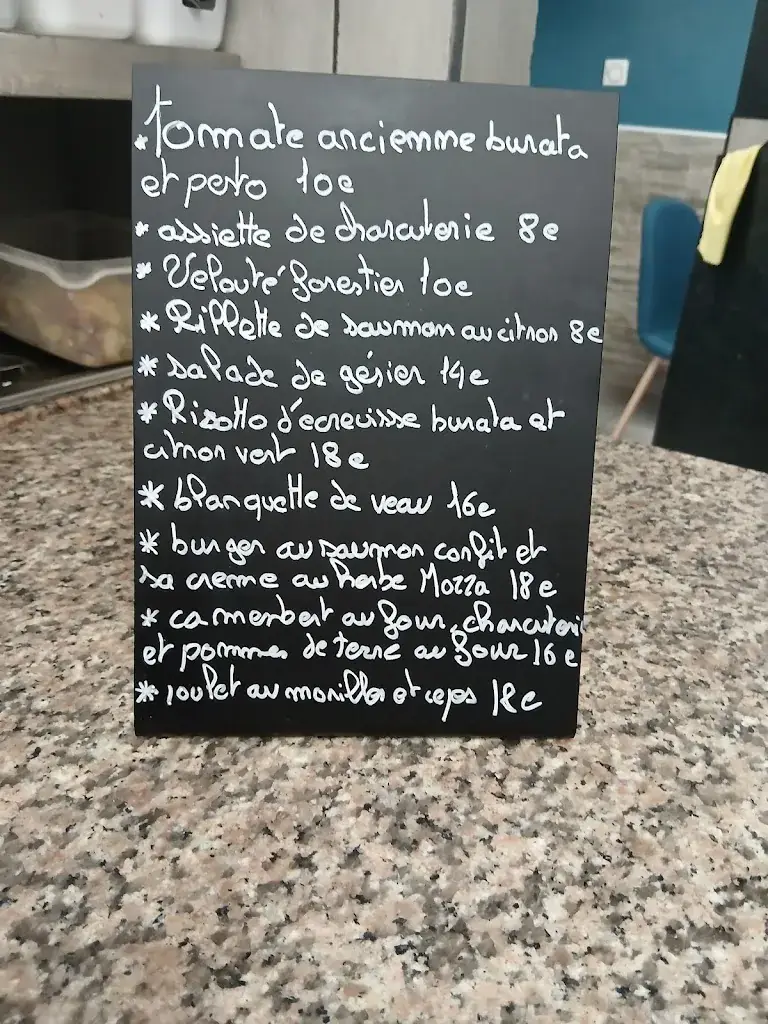 * Tomate ancienne burata
et pesto 10e
* assiette de charcuterie 8e
* Velouté forestier 10e
* Rillette de saumon au citron 8e
* salade de gésier 14e
* Rizotto d'écrevisse burata et
citron vert 18e
* blanquette de veau 16e
* burger au saumon confit et
sa creme au herbe Mozza 18e
* camenbert au four, charcuterie
et pommes de terre au four 16e
* poulet au morilles et ceps 18e